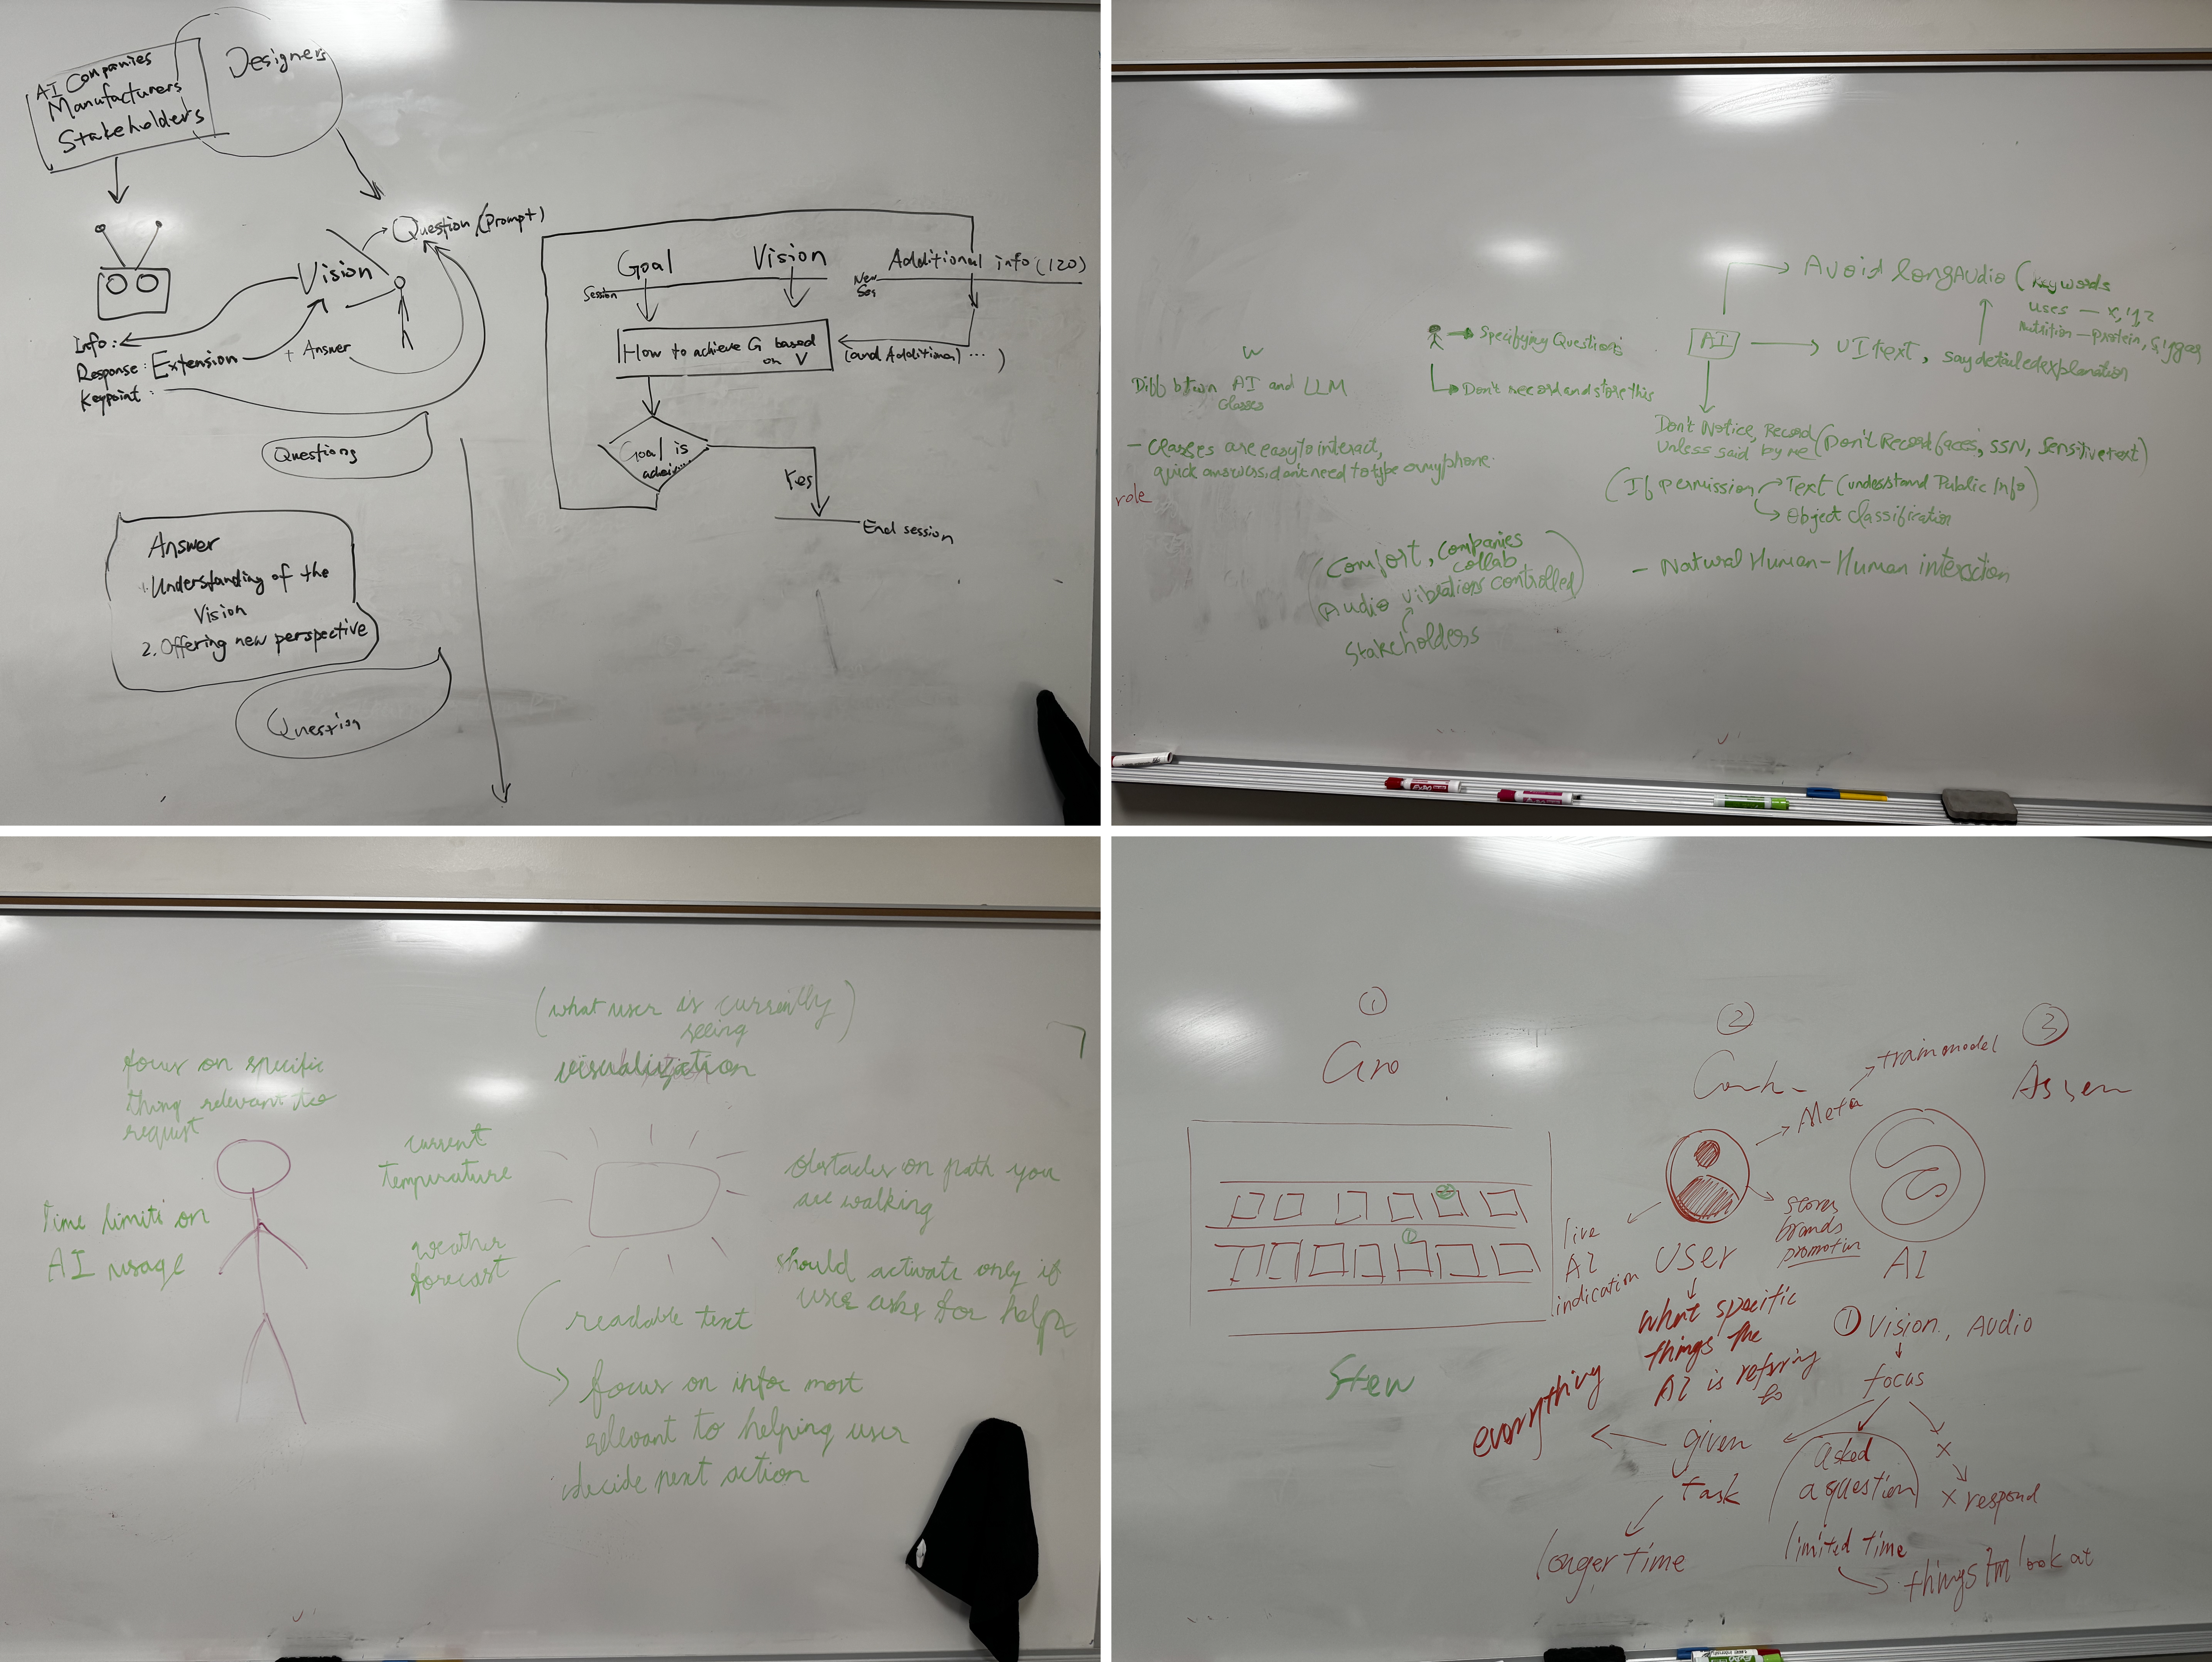 AI Companies
Manufacturers
Stakeholders
Designers
Question (Prompt)
Vision
Info:
Response: Extension
+ Answer
Keypoint:
Questions
Answer
1. Understanding of the
Vision
2. Offering new perspective
Question
Goal
Vision
Additional info (120)
Session
New
How to achieve G based
on V
(and Additional) ... )
Goal is
Yes
End session
Avoid long Audio (Keywords
uses — x, y, z
Nutrition — protein,
AI
UI text, say detailed explanation
Specifying Questions
Don't record and store this
Diff btwn AI and LLM
Glasses
- Glasses are easy to interact,
quick answers, don't need to type on my phone.
role
Don't Notice, Record (Don't Record faces, SSN, Sensitive text)
Unless said by me
(If permission Text (understand Public Info)
Object Classification
- Natural Human-Human interaction
(Comfort, Companies
collab
Audio vibrations controlled)
Stakeholders
(what user is currently)
seeing
visualization
focus on specific
thing relevant to
request
current
temperature
Time limits on
AI usage
weather
forecast
obstacles on path you
are walking
should activate only if
user asks for help
readable text
focus on info most
relevant to helping user
decide next action
1
2
3
train model
Meta
live
AI
indication
User
stores
brands
promotion
AI
what specific
things the
AI is referring
to
1 Vision, Audio
focus
everything
given
task
asked
a question
x
x respond
longer time
limited time
things I'm look at